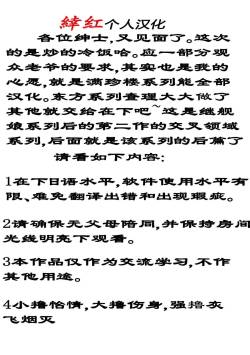 绯红个人汉化
各位绅士,又见面了。这次
的是炒的冷饭哈。应一部分观
众老爷的要求,其实也是我的
心愿,就是满珍楼系列能全部
汉化。东方系列查理大大做了
其他就交给在下吧~这是继舰
娘系列后的第二作的交叉领域
系列,后面就是该系列的后篇了
请看如下内容:
1在下日语水平,软件使用水平有
限、难免翻译出错和出现瑕疵。
2请确保无父母陪同,并保持房间
光线明亮下观看。
3本作品仅作为交流学习,不作
其他用途。
4小撸怡情,大撸伤身,强撸灰
飞烟灭